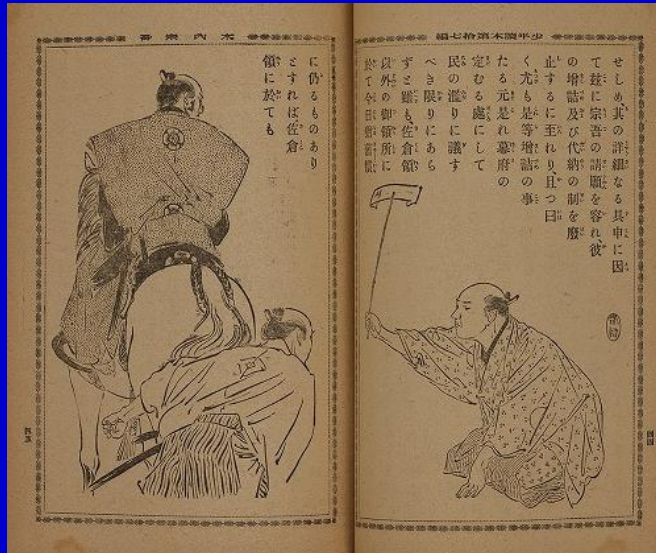 少年讀本第拾七編
せしめ、其の詳細なる具申に因
て茲に宗吾の請願を容れ、彼
の增詰及び代納の制を廢
止するに至れり、且つ曰
く尤も是等增詰の事
たる元是れ幕府の
定むる處にして
民の濫りに議す
べき限りにあら
ずと雖も、佐倉領
以外の御領所に
於て今日
四四
木內宗吾
に偽るものあり
とすれば、佐倉
領に於ても
四五